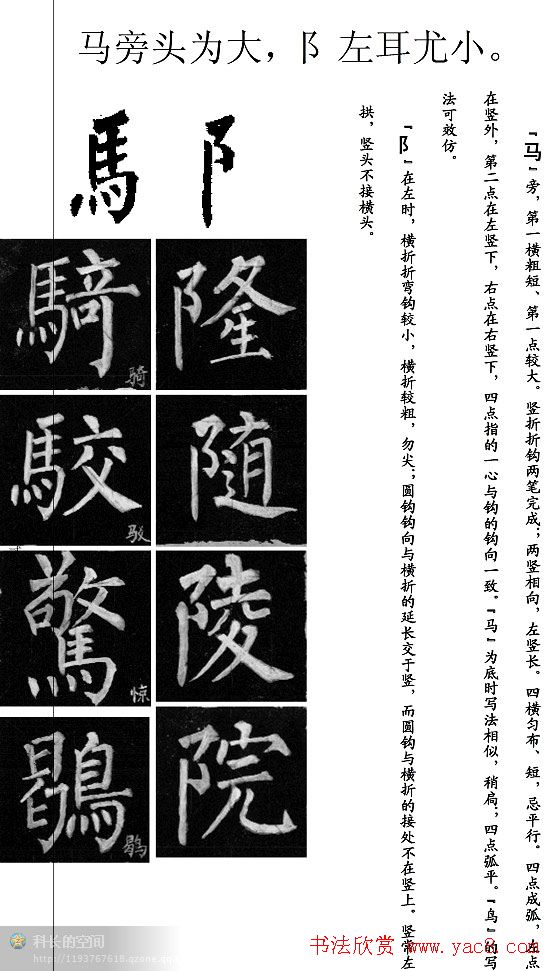 马旁头为大，阝左耳尤小。
“马”旁，第一横粗短、第一点较大。竖折折钩两笔完成；两竖相向，左竖长。四横匀布、短，忌平行。四点成弧，左点
在竖外，第二点在左竖下，右点在右竖下，四点指的一心与钩的钩向一致。“马”为底时写法相似，稍扁；四点弧平。“鸟”的写
法可效仿。
“阝”在左时，横折折弯钩较小，横折较粗，勿尖；圆钩钩向与横折的延长交于竖，而圆钩与横折的接处不在竖上。竖常左
拱，竖头不接横头。
馬 阝
騎 骑
駮 驳
驚 惊
鶡 鹖
隆
随
陵
院
科长的空间
http://1193767618.qzone.qq.co
书法欣赏 www.yac8.com